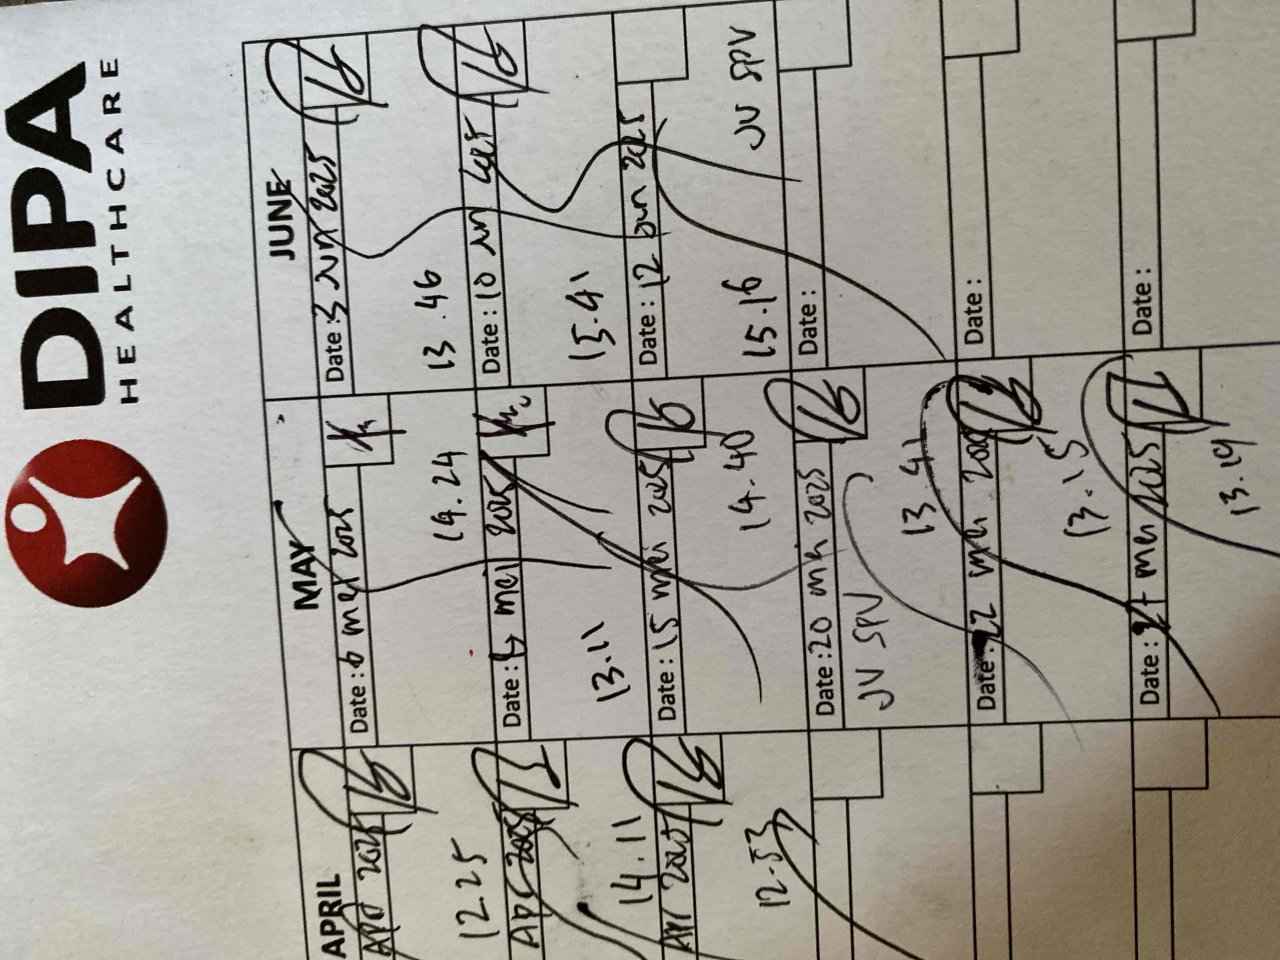 DIPA
HEALTHCARE
APRIL
Apr 2025
12.25
Apr 2025
14.11
Apr 2025
12.53
MAY
Date: 6 mei 2025
14.24
Date: mei 2025
13.11
Date: 15 mei 2025
14.40
Date: 20 mei 2025
JV SPV
13.41
Date: 22 mei 2025
13.15
Date: 27 mei 2025
13.19
JUNE
Date: 3 Jun 2025
13.46
Date: 10 Jun 2025
15.41
Date: 12 Jun 2025
JV SPV
15.16
Date:
Date:
Date: